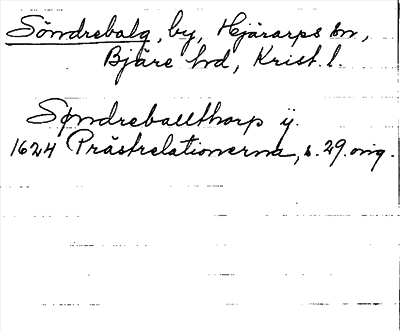 Söndrebalg, by, Hjärarps sn,
Bjäre hd, Krist. l.
Søndreballthorp ij.
1624 Prästrelationerna, s. 29. orig.